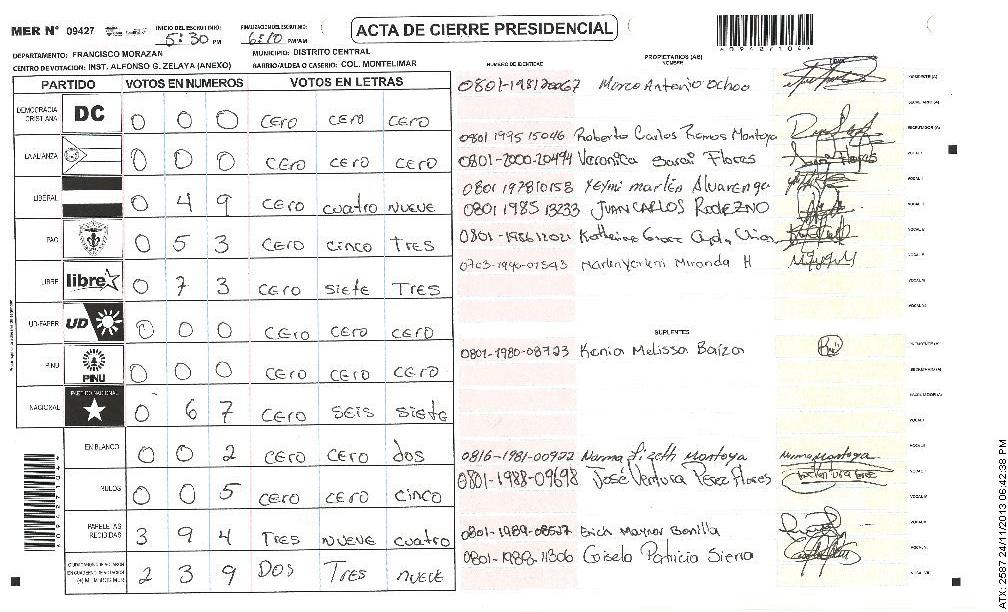 MER N° 09427 INICIO DEL ESCRUTINIO: 5:30 PM FINALIZACION DEL ESCRUTINIO: 6:10 PM/AM ACTA DE CIERRE PRESIDENCIAL
DEPARTAMENTO: FRANCISCO MORAZAN MUNICIPIO: DISTRITO CENTRAL
CENTRO DE VOTACION: INST. ALFONSO G. ZELAYA (ANEXO) BARRIO/ALDEA O CASERIO: COL. MONTELIMAR
PARTIDO VOTOS EN NUMEROS VOTOS EN LETRAS
DEMOCRACIA CRISTIANA DC 0 0 0 CERO CERO CERO
LA ALIANZA 0 0 0 CERO CERO CERO
LIBERAL 0 4 9 CERO CUATRO NUEVE
PAC 0 5 3 CERO CINCO TRES
LIBRE libre 0 7 3 CERO SIETE TRES
UD-FAPER UD 0 0 0 CERO CERO CERO
PINU PINU 0 0 0 CERO CERO CERO
NACIONAL PARTIDO NACIONAL 0 6 7 CERO SEIS SIETE
EN BLANCO 0 0 2 CERO CERO DOS
NULOS 0 0 5 CERO CERO CINCO
PAPELETAS RECIBIDAS 3 9 4 TRES NUEVE CUATRO
2 3 9 DOS TRES NUEVE
NUMERO DE IDENTIDAD PROPIETARIOS (AS)
NOMBRE FIRMA
0801-198120067 Marco Antonio Ochoa
0801 1995 15046 Roberto Carlos Ramos Montoya
0801-2000-20494 Veronica Sarai Flores
0801 197810158 Yeymi marlen Alvarenga
0801 1985 13233 JUAN CARLOS RODEZNO
0801-1986 12021 Katherine
0703-1990-01543 Marlen Yorleni Miranda H
SUPLENTES
0801-1980-08723 Kenia Melissa Baiza
0816-1981-00922 Norma Lizeth Montoya Norma Montoya
0801-1988-09698 José Ventura Pérez Flores
0801-1989-08527 Erich Maynor Bonilla
0801-1988-11306 Gisela Patricia Sierra
094271044
094271044
ATX: 2587 24/11/2013 06:42:38 PM